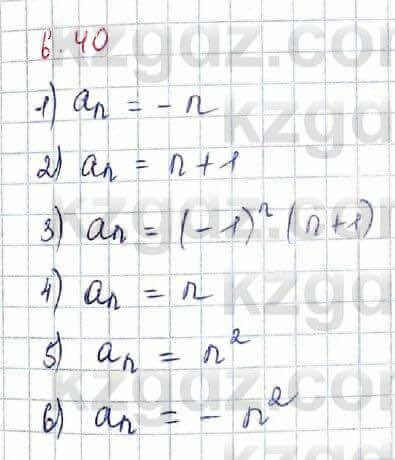 6.40
1) aₙ = -n
2) aₙ = n+1
3) aₙ = (-1)ⁿ (n+1)
4) aₙ = n
5) aₙ = n²
6) aₙ = -n²